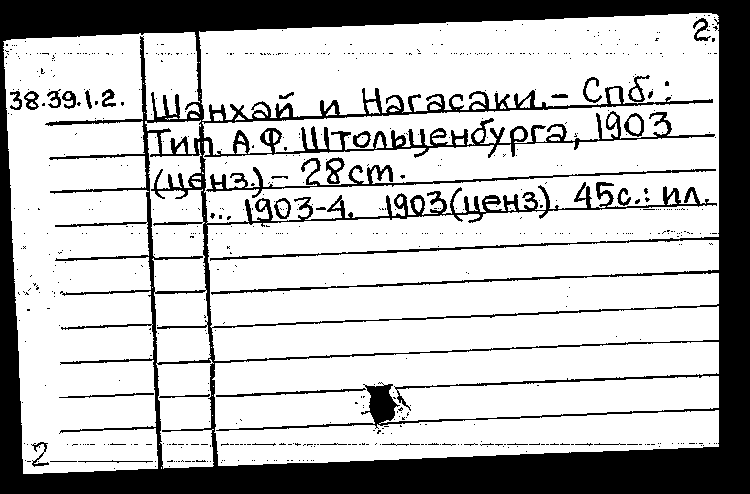 2.
38.39.1.2. Шанхай и Нагасаки.- Спб.:
Тип. А.Ф. Штольценбурга, 1903
(ценз.).- 28ст.
... 1903-4. 1903(ценз.). 45с.: ил.
2